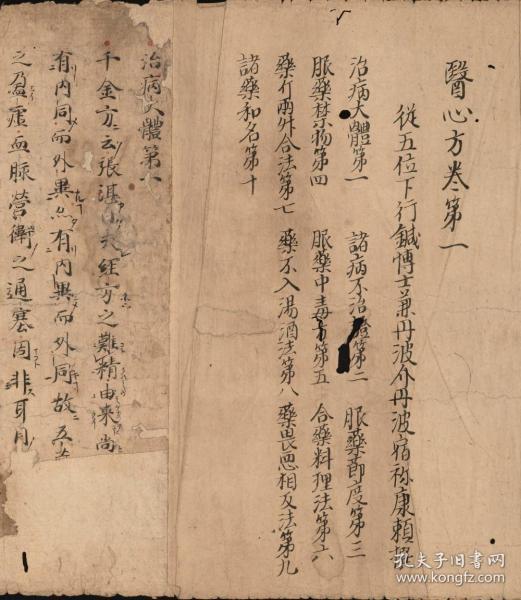 醫心方卷第一
從五位下行鍼博士兼丹波介丹波宿祢康賴撰
治病大體第一 諸病不治證第二 服藥節度第三
服藥禁物第四 服藥中毒方第五 合藥料理法第六
藥斤兩升合法第七 藥不入湯酒法第八 藥畏惡相反法第九
諸藥和名第十
治病大體第一
千金方云張湛曰夫經方之難精由來尚
有內同而外異亦有內異而外同故五
之盈虛血脉營衛之通塞固非耳目
孔夫子旧书网
www.kongfz.com